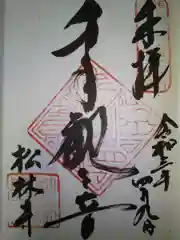 奉拝
令和三年四月九日
千手観音
松林寺